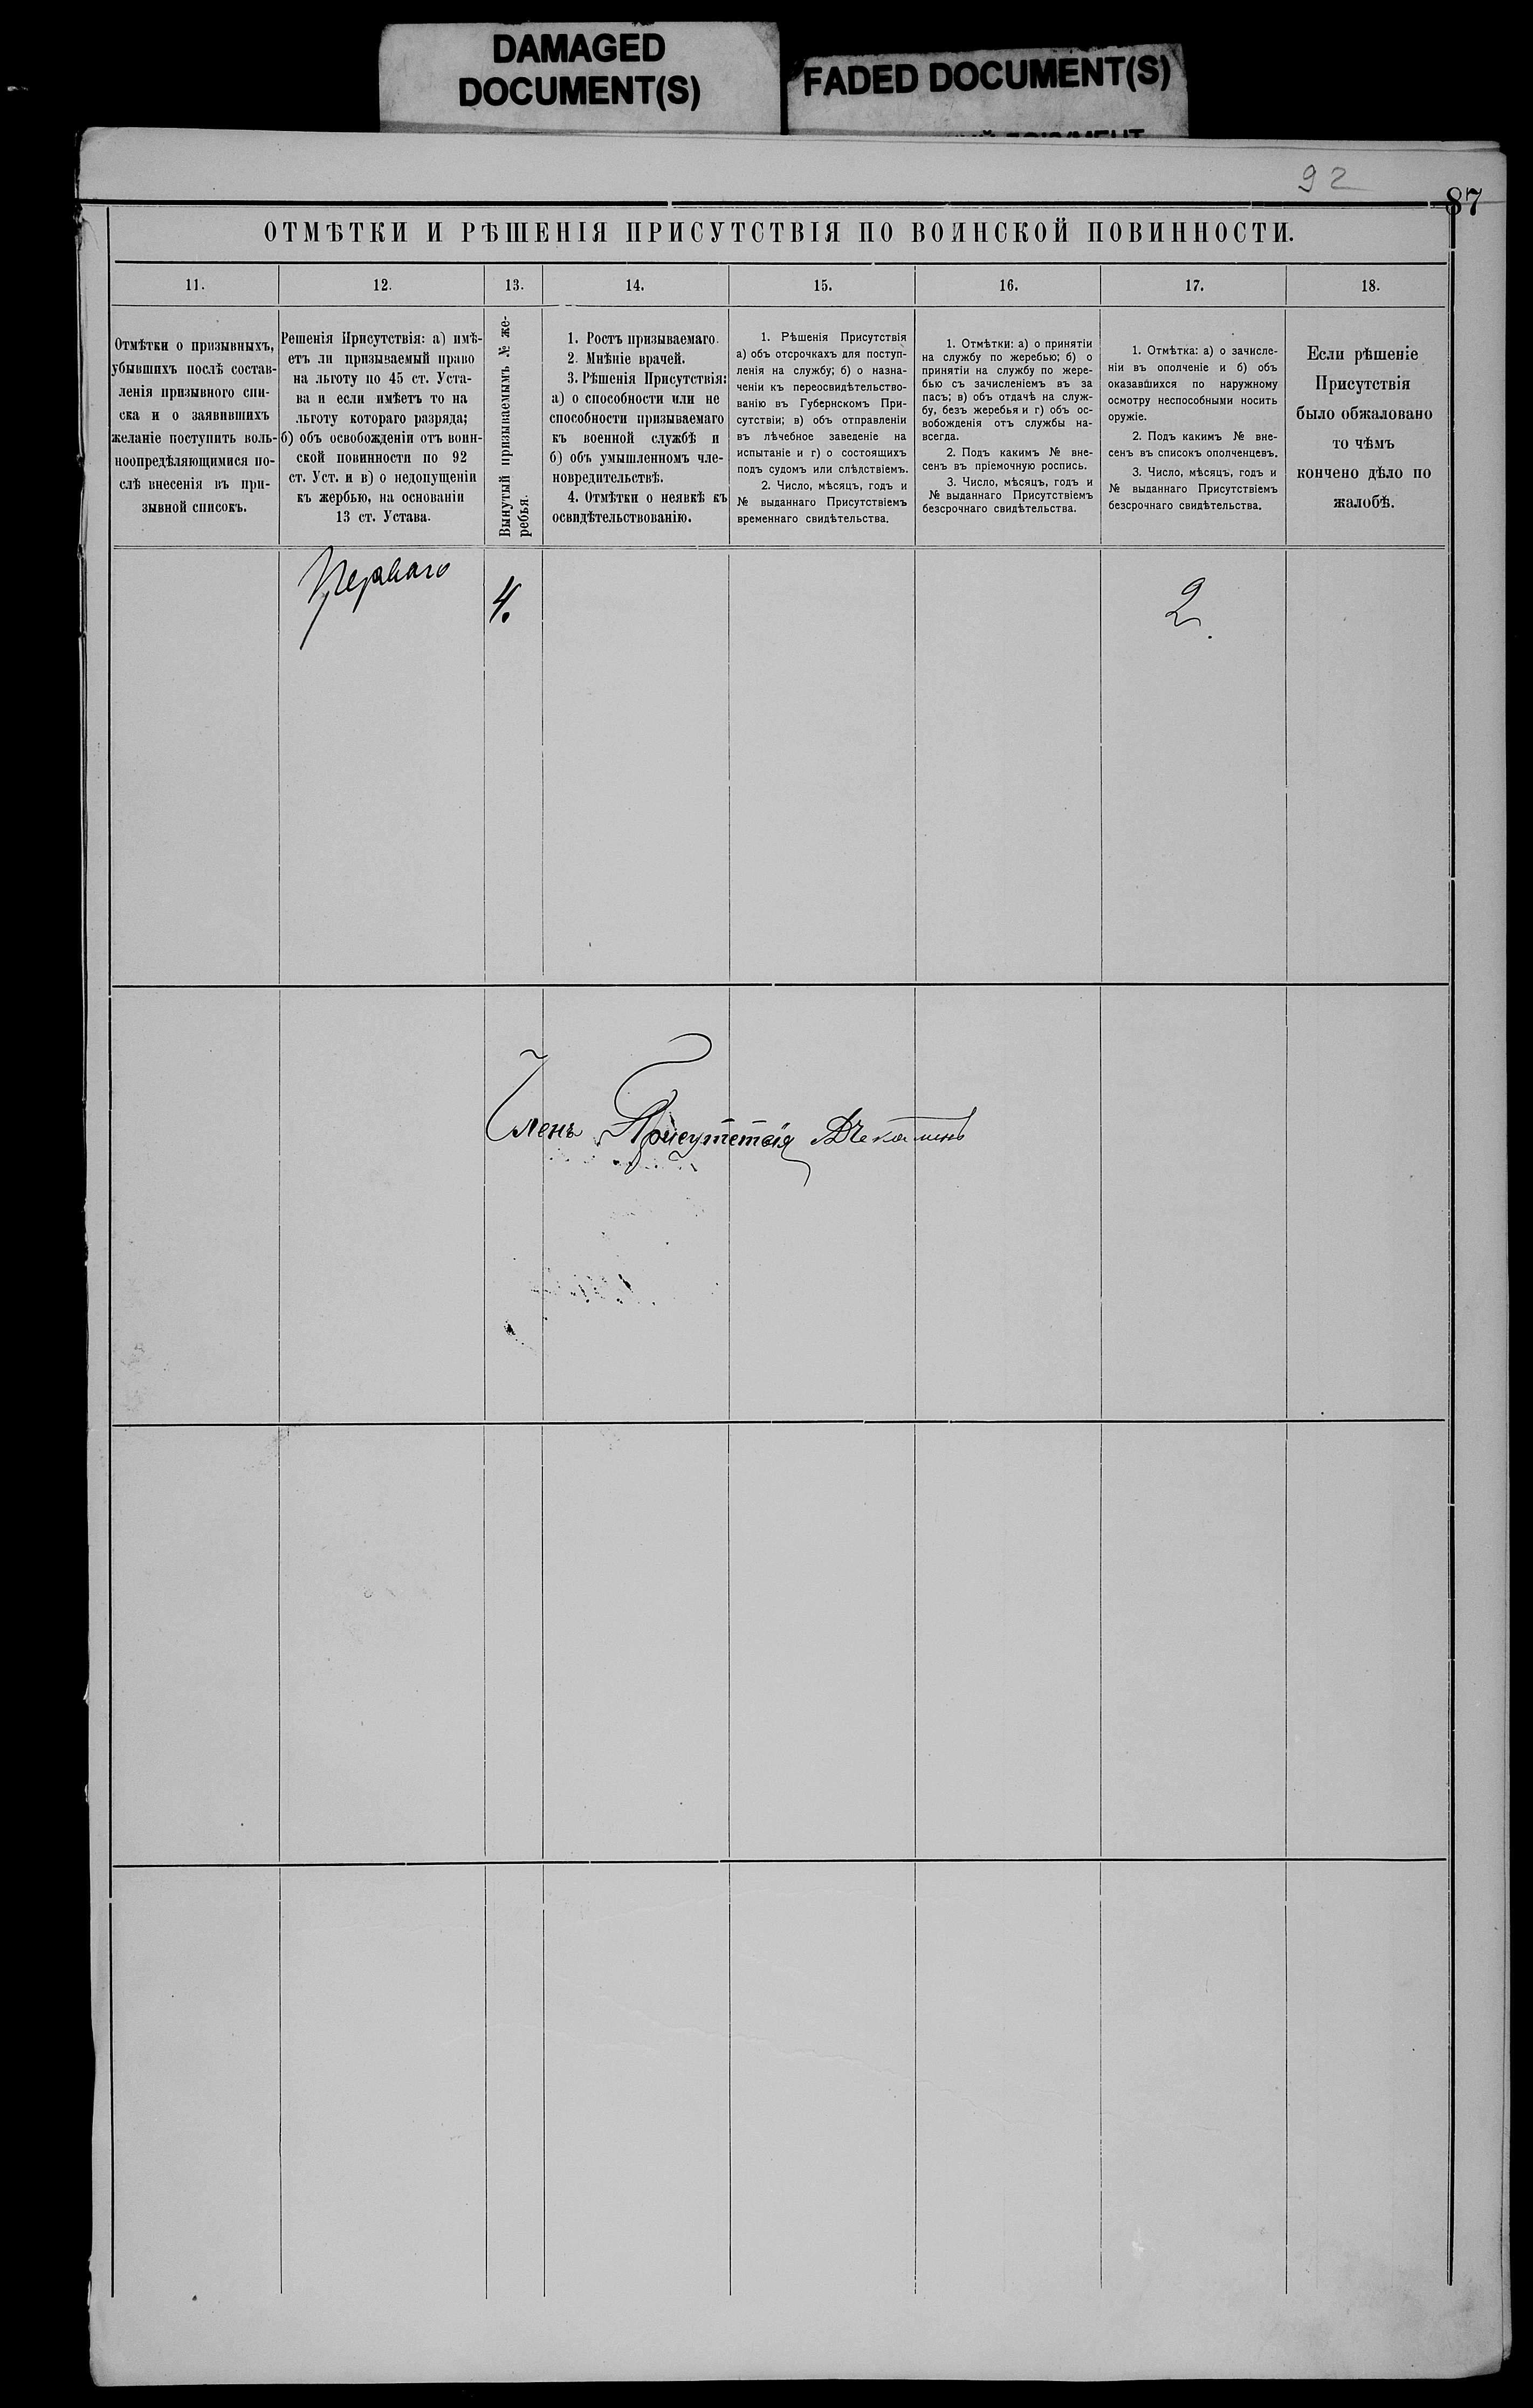 DAMAGED
DOCUMENT(S)
FADED DOCUMENT(S)
92
87
ОТМѢТКИ И РѢШЕНІЯ ПРИСУТСТВІЯ ПО ВОИНСКОЙ ПОВИННОСТИ.
11.
12.
13.
14.
15.
16.
17.
18.
Отмѣтки о призывныхъ,
убывшихъ послѣ состав-
ленія призывного спи-
ска и о заявившихъ
желаніе поступить воль-
ноопредѣляющимися по-
слѣ внесенія въ при-
зывной списокъ.
Решенія Присутствія: а) имѣ-
етъ ли призываемый право
на льготу по 45 ст. Уста-
ва и если имѣетъ то на
льготу котораго разряда;
б) объ освобожденіи отъ воин-
ской повинности по 92
ст. Уст. и в) о недопущеніи
къ жербью, на основаніи
13 ст. Устава.
Вынутый призываемымъ № же-
ребья.
1. Ростъ призываемаго.
2. Мнѣніе врачей.
3. Рѣшенія Присутствія:
а) о способности или не
способности призываемаго
къ военной службѣ и
б) объ умышленномъ чле-
новредительствѣ.
4. Отмѣтки о неявкѣ къ
освидѣтельствованію.
1. Рѣшенія Присутствія
а) объ отсрочкахъ для поступ-
ленія на службу; б) о назна-
ченіи къ переосвидѣтельство-
ванію въ Губернскомъ При-
сутствіи; в) объ отправленіи
въ лѣчебное заведеніе на
испытаніе и г) о состоящихъ
подъ судомъ или слѣдствіемъ.
2. Число, мѣсяцъ, годъ и
№ выданнаго Присутствіемъ
временнаго свидѣтельства.
1. Отмѣтки: а) о принятіи
на службу по жеребью; б) о
принятіи на службу по жере-
бью съ зачисленіемъ въ за
пасъ; в) объ отдачѣ на служ-
бу, безъ жеребья и г) объ ос-
вобожденія отъ службы на-
всегда.
2. Подъ какимъ № вне-
сенъ въ пріемочную роспись.
3. Число, мѣсяцъ, годъ и
№ выданнаго Присутствіемъ
безсрочнаго свидѣтельства.
1. Отмѣтка: а) о зачисле-
ніи въ ополченіе и б) объ
оказавшихся по наружному
осмотру неспособными носить
оружіе.
2. Подъ какимъ № вне-
сенъ въ списокъ ополченцевъ.
3. Число, мѣсяцъ, годъ и
№ выданнаго Присутствіемъ
безсрочнаго свидѣтельства.
Если рѣшеніе
Присутствія
было обжаловано
то чѣмъ
кончено дѣло по
жалобѣ.
Перваго
4.
2.
Членъ Присутствія